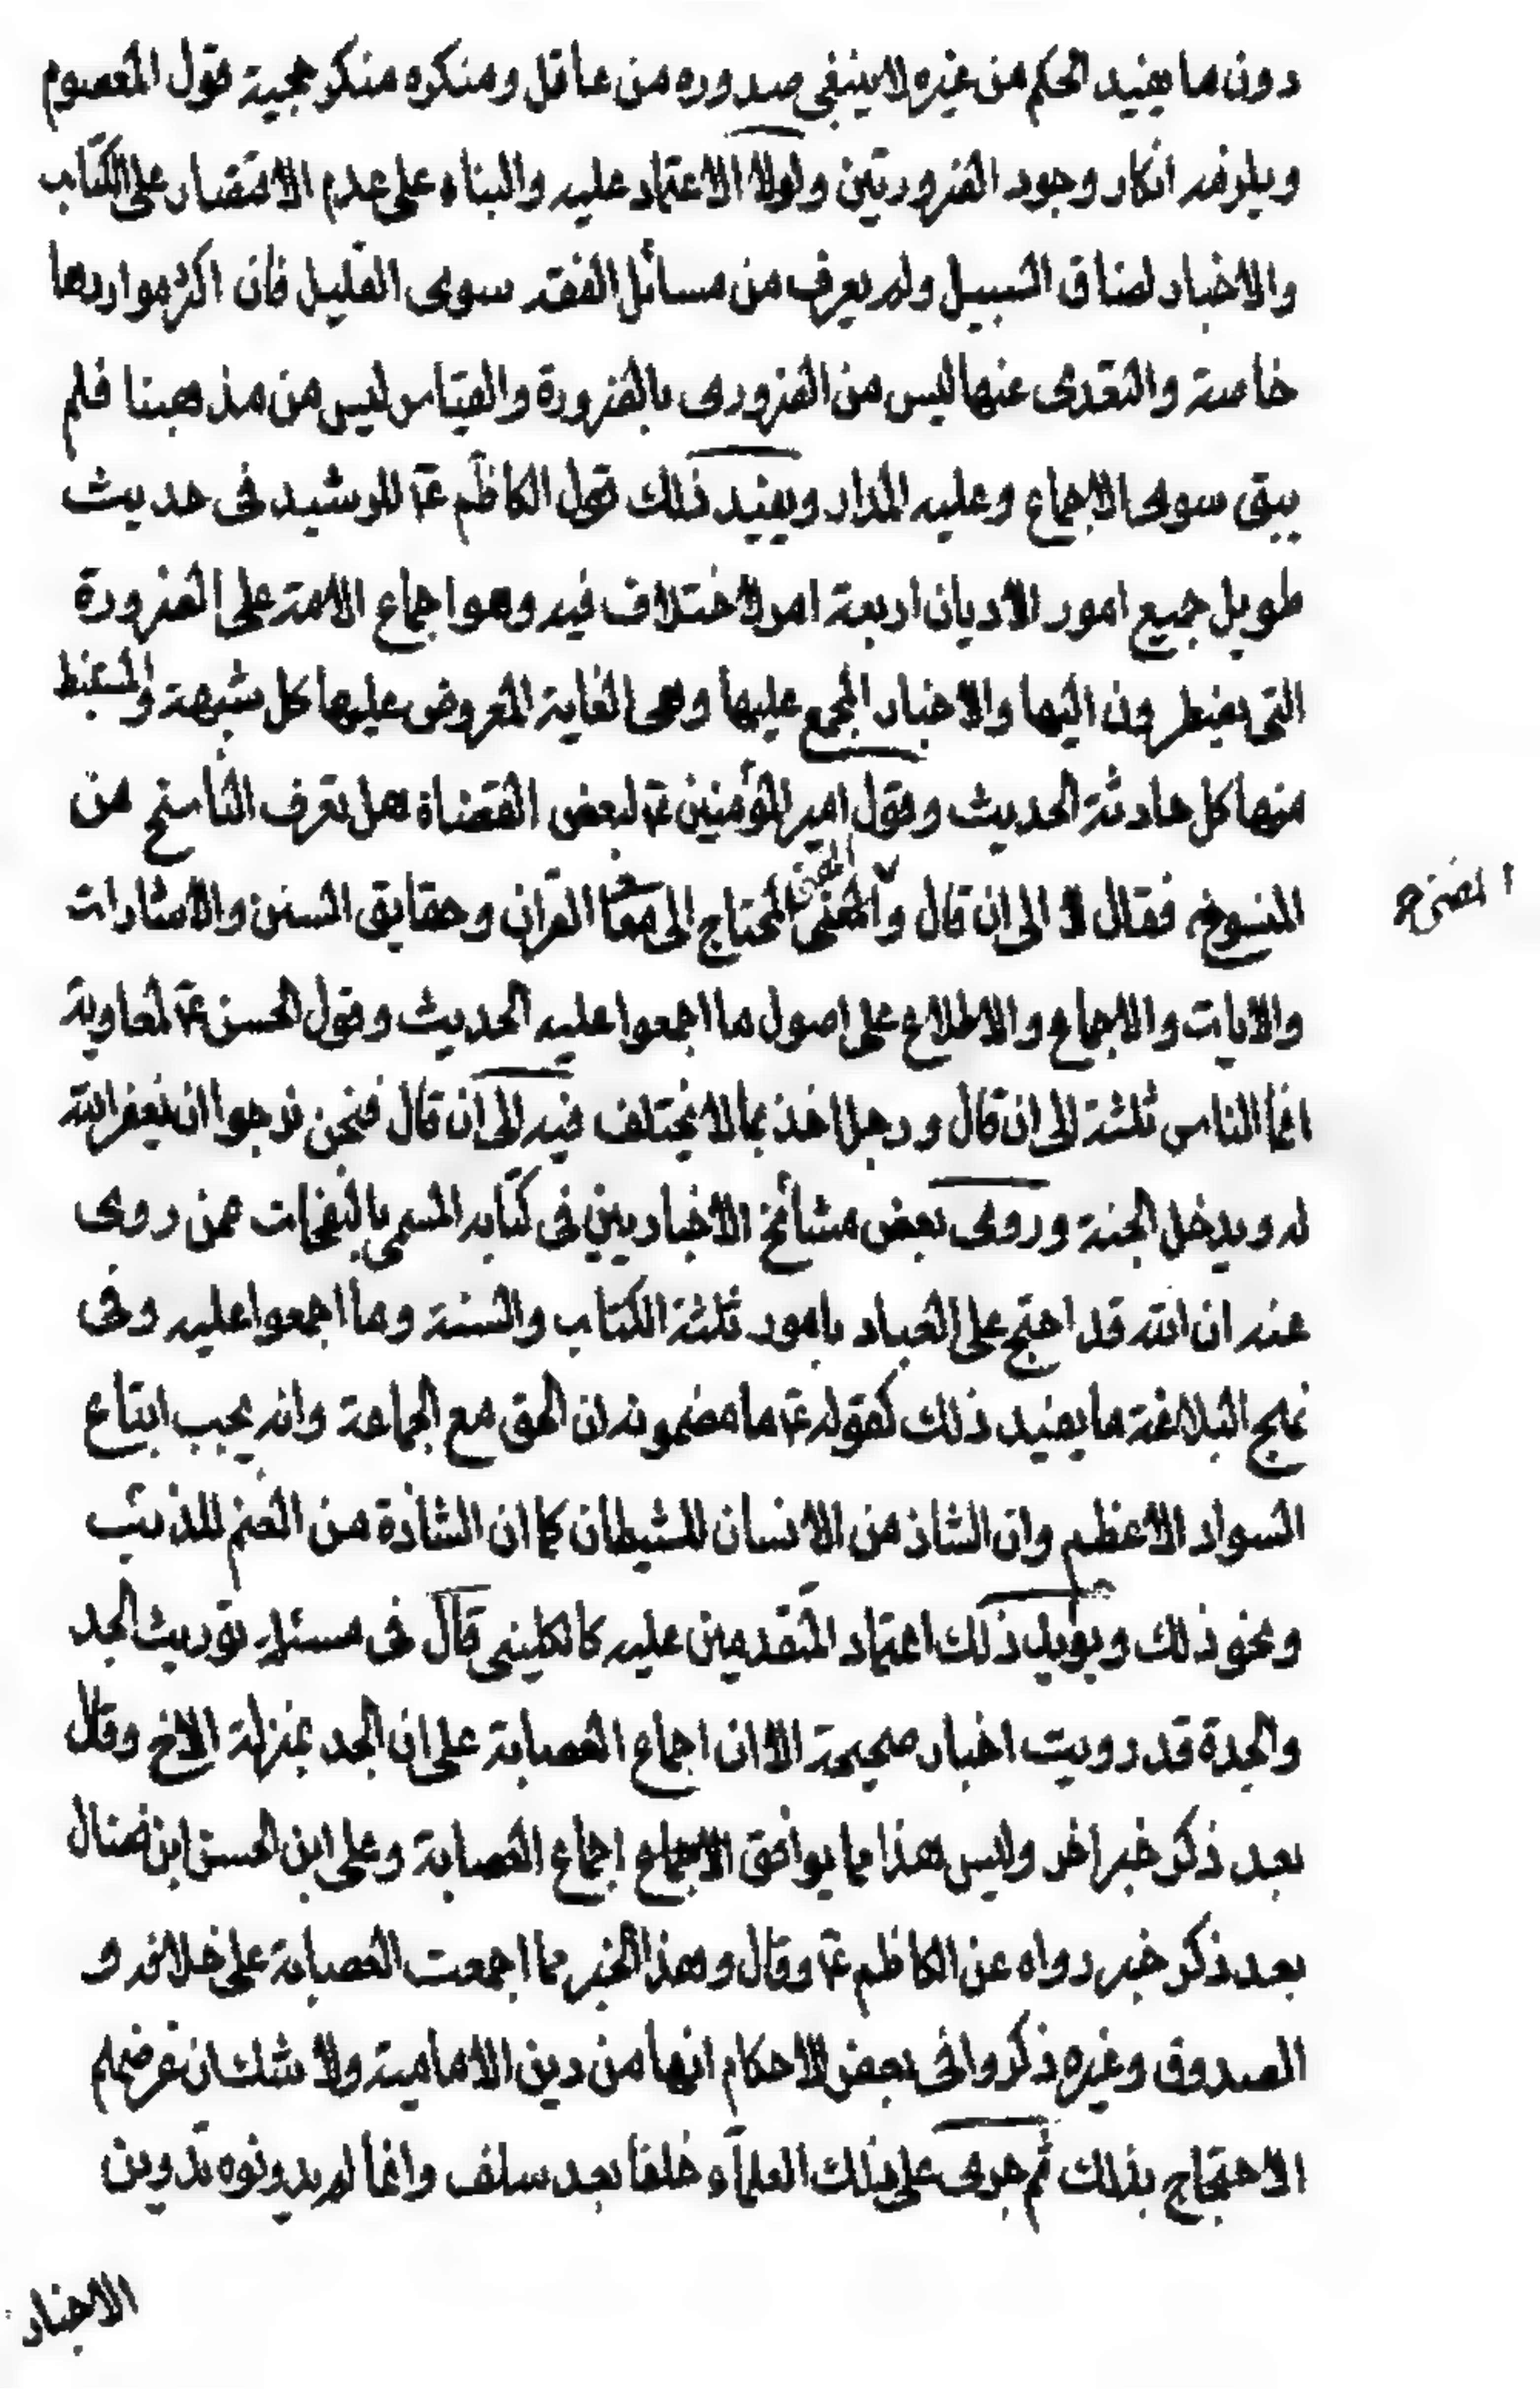 دون ما يفيد الحكم من غيره لا ينبغى صدوره من عاقل ومنكره منكر حجية قول المعصوم
ويلزمه انكار وجود الضرورتين ولولا الاعتماد عليه والبناء على عدم الاقتصار على الكتاب
والاخبار لضاق السبيل ولم يعرف من مسائل الفقه سوى القليل فان اكثر مواردها
خاصة والتعدى عنها ليس من الضرورى بالضرورة والقياس ليس من مذهبنا فلم
يبق سوى الاجماع وعليه المدار ويفيد ذلك قول الكاظم ع للرشيد فى حديث
طويل جميع امور الاديان اربعة امر لا اختلاف فيه وهو اجماع الامة على الضرورة
التى يضطرون اليها والاخبار المجمع عليها وهى الغاية المعروض عليها كل شبهة والمستنبط
منها كل حادثة الحديث وقول امير المؤمنين ع لبعض القضاة هل تعرف الناسخ من
المنسوخ فقال لا الى ان قال والمفتى المحتاج الى معانى القران وحقايق السنن والاشارات
والايات والاجماع والاطلاع على اصول ما اجمعوا عليه الحديث وقول الحسن ع لمعاوية
انما الناس ثلثة الى ان قال ورجل اخذ بما لا يختلف فيه الى ان قال فنحن نرجوا ان يغفر الله
له ويدخل الجنة وروى بعض مشائخ الاخباريين فى كتابه المسمى بالنفحات عمن روى
عنه ان الله قد احتج على العباد بامور ثلثة الكتاب والسنة وما اجمعوا عليه وفى
نهج البلاغة ما يفيد ذلك كقوله ع ما مضمونه ان الحق مع الجماعة وانه يجب اتباع
السواد الاعظم وان الشاذ من الانسان للشيطان كما ان الشاذة من الغنم للذئب
ونحو ذلك ويؤيد ذلك اعتماد المتقدمين عليه كالكلينى قال فى مسئلة توريث الجد
والجدة قد رويت اخبار صحيحة الا ان اجماع العصابة على ان الجد بمنزلة الاخ وقال
بعد ذكر خبر اخر وليس هذا مما يوافق اجماع العصابة وعلى ابن الحسن ابن فضال
بعد ذكر خبر رواه عن الكاظم ع وقال وهذا الخبر مما اجمعت العصابة على خلافه و
الصدوق وغيره ذكروا فى بعض الاحكام انها من دين الامامية ولا شك ان غرضهم
الاحتجاج بذلك ثم جرى على ذلك العلماء خلفا بعد سلف وانما لم يدونوه تدوين
الاخبار